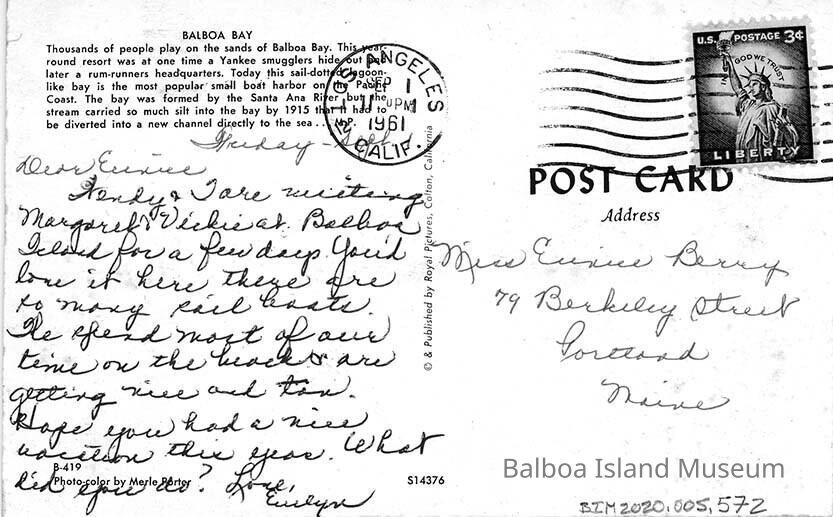 BALBOA BAY
Thousands of people play on the sands of Balboa Bay. This year-
round resort was at one time a Yankee smugglers hide out and
later a rum-runners headquarters. Today this sail-dotted lagoon-
like bay is the most popular small boat harbor on the Pacific
Coast. The bay was formed by the Santa Ana River but the
stream carried so much silt into the bay by 1915 that it had to
be diverted into a new channel directly to the sea . . . M.P.
LOS ANGELES
CALIF.
SEP 1
PM
1961
U.S. POSTAGE 3¢
IN GOD WE TRUST
LIBERTY
POST CARD
Address
Friday - Sept 1
Dear Eunice
Wendy & I are visiting
Margaret & Vickie at Balboa
Island for a few days. You'd
love it here there are
so many sail boats.
We spend most of our
time on the beach & are
getting nice and tan.
Hope you had a nice
vacation this year. What
did you do? Love,
Evelyn
Miss Eunice Berry
79 Berkeley Street
Portland
Maine
© & Published by Royal Pictures, Colton, California
B-419
Photo-color by Merle Porter
S14376
Balboa Island Museum
BIM2020.005.572